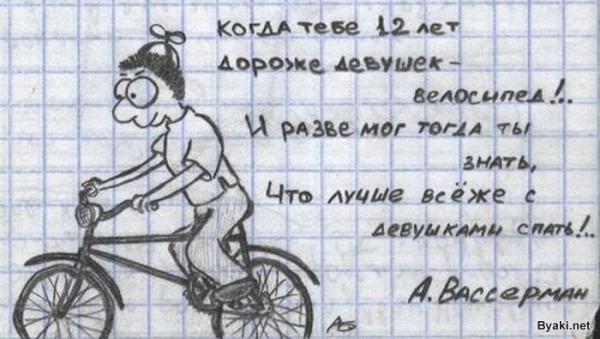 Когда тебе 12 лет
дороже девушек –
велосипед!..
И разве мог тогда ты
знать,
Что лучше всё же с
девушками спать!..
А. Вассерман
АБ
Byaki.net